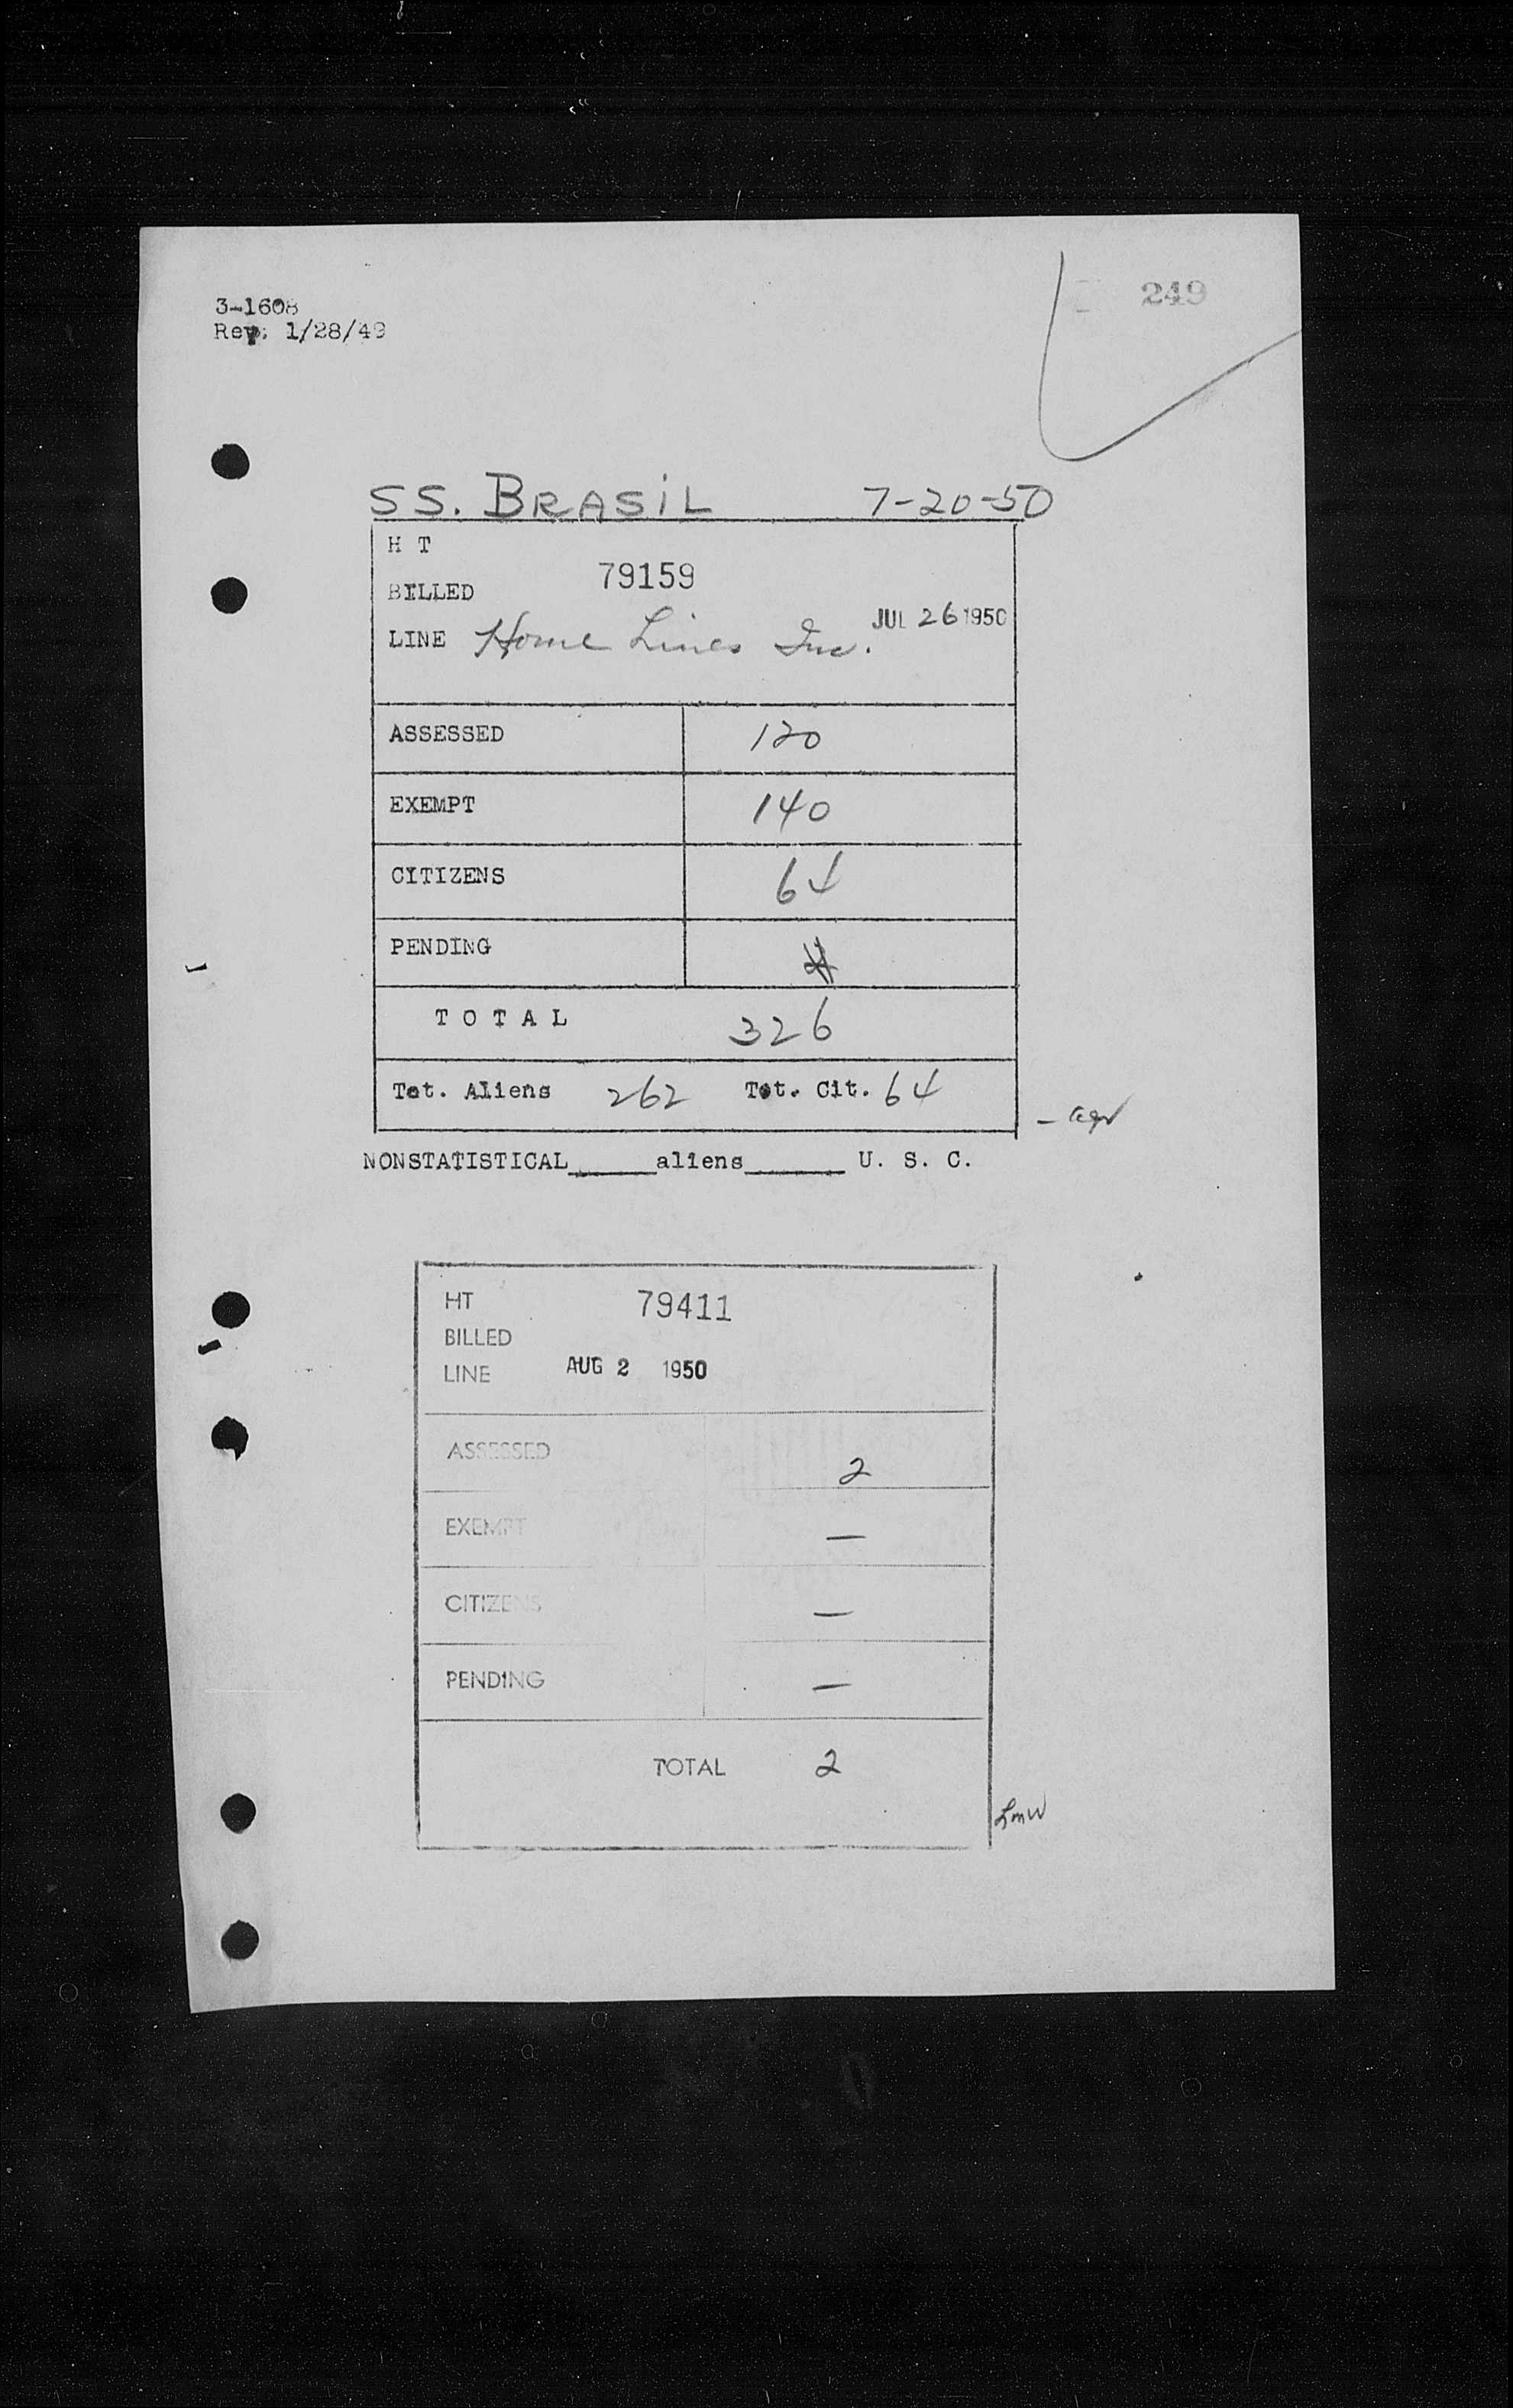 249
3-1608
Rev. 1/28/49
SS. BRASIL 7-20-50
H T
79159
BILLED
JUL 26 1950
LINE Home Lines Inc.
ASSESSED 120
EXEMPT 140
CITIZENS 64
PENDING
T O T A L 326
Tot. Aliens 262 Tot. Cit. 64
NONSTATISTICAL______aliens_______ U. S. C.
HT 79411
BILLED
LINE AUG 2 1950
ASSESSED 2
EXEMPT —
CITIZENS —
PENDING —
TOTAL 2
LMW